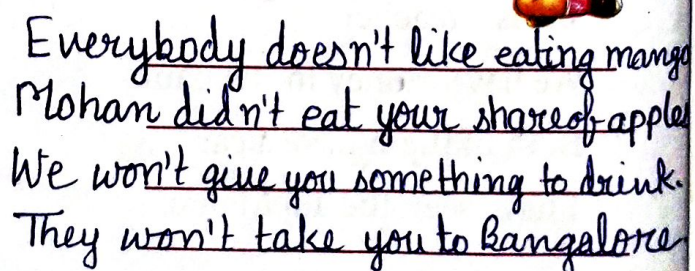 Everybody doesn't like eating mango
Mohan didn't eat your share of apples
We won't give you something to drink.
They won't take you to Bangalore